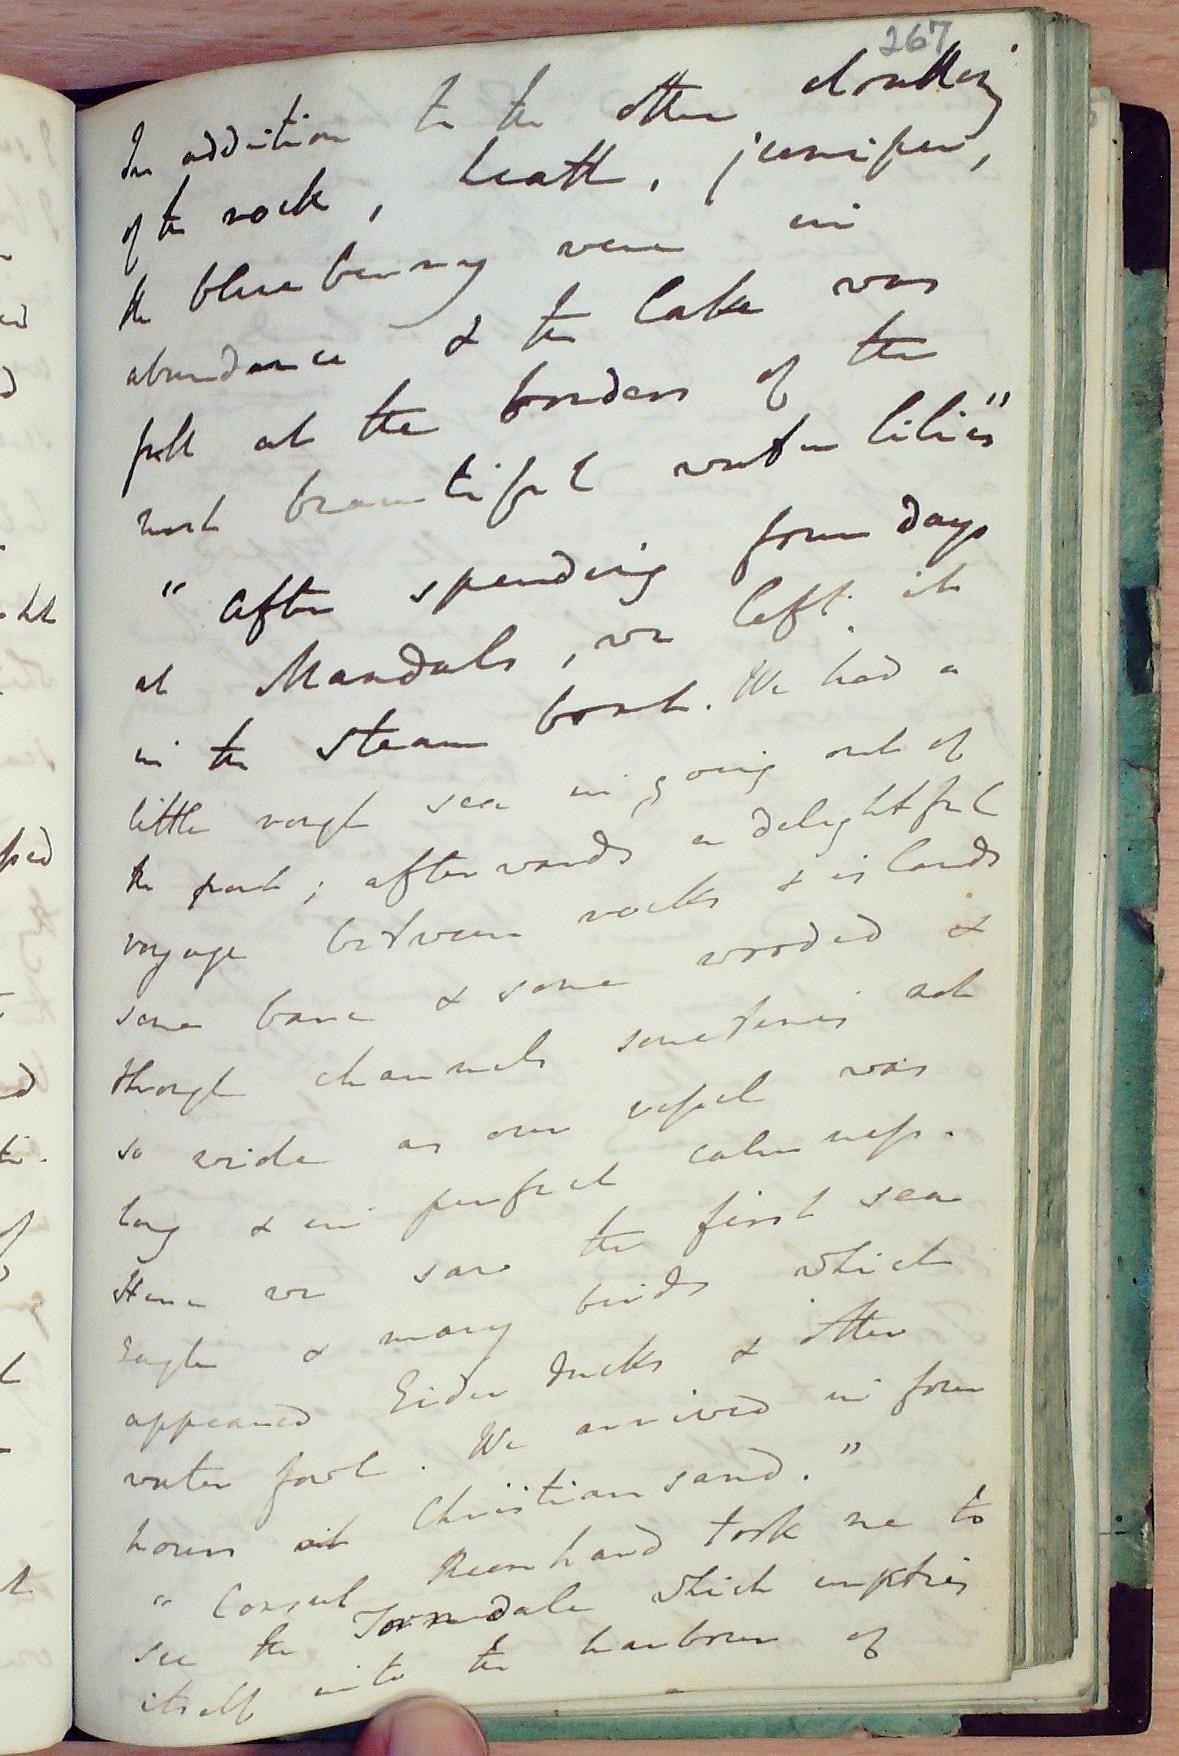 267
In addition to the other clothing
of the rock, heath, juniper,
the blueberry were in
abundance & the lake was
full at the borders of the
most beautiful water lilies"
"After spending four days
at Mandals, we left it
in the steam boat. We had a
little rough sea in going out of
the port; afterwards a delightful
voyage between rocks & islands
some bare & some wooded &
through channels sometimes not
so wide as our vessel was
long & in perfect calmness.
Here we saw the first sea
Eagle & many birds which
appeared Eider ducks & other
water fowl. We arrived in four
hours at Christiansand."
"Consul Reinhard took me to
see the Torrisdale which empties
itself into the harbour of